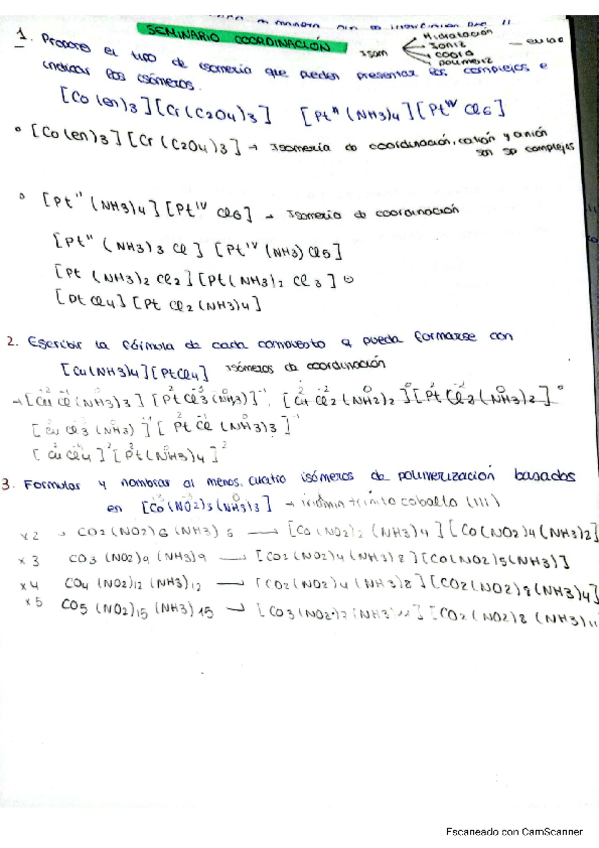 SEMINARIO COORDINACIÓN
Isom
Hidratación
Ioniz
coord
polimeriz
1. Proponer el tipo de isomería que pueden presentar los complejos e
indicar los isómeros.
[Co(en)3][Cr(C2O4)3] [Pt" (NH3)4][Pt IV Cl6]
• [Co(en)3][Cr(C2O4)3] → Isomería de coordinación, catión y anión
son complejos
• [Pt" (NH3)4][Pt IV Cl6] → Isomería de coordinación
[Pt" (NH3)3 Cl] [Pt IV (NH3) Cl5]
[Pt (NH3)2 Cl2][Pt(NH3)2 Cl3]
[Pt Cl4][Pt Cl2(NH3)4]
2. Escribir la fórmula de cada compuesto q pueda formarse con
[Cu(NH3)4][PtCl4] Isómeros de coordinación
→[Cu Cl(NH3)3] [Pt Cl3(NH3)]⁻¹, [Cu Cl2(NH2)2]⁰[Pt Cl2(NH3)2]⁰
[Cu Cl3 (NH3)]⁻¹[Pt Cl (NH3)3]⁻¹
[Cu Cl4]²[Pt(NH3)4]²
3. Formular y nombrar al menos cuatro isómeros de polimerización basados
en [Co(NO2)3(NH3)3] → cobalto (III)
x2 CO2(NO2)6(NH3)6 → [Co(NO2)2(NH3)4][Co(NO2)4(NH3)2]
x3 CO3(NO2)9(NH3)9 → [CO2(NO2)4(NH3)8][Co(NO2)5(NH3)]
x4 CO4(NO2)12(NH3)12 → [CO2(NO2)4(NH3)8][CO2(NO2)8(NH3)4]
x5 CO5(NO2)15(NH3)15 → [CO3(NO2)7(NH3)11][CO2(NO2)8(NH3)11
Escaneado con CamScanner